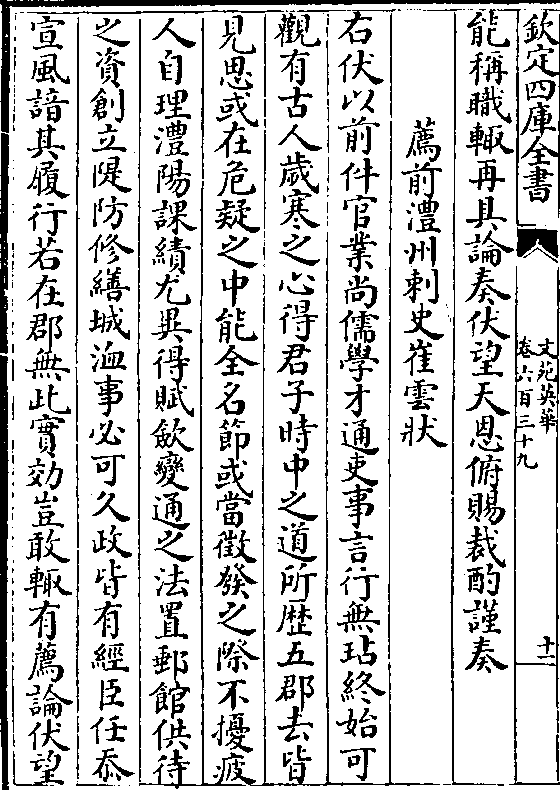 欽定四庫全書
文苑英華
卷六百三十九
十一
能稱職輙再具論奏伏望天恩俯賜裁酌謹奏
薦前澧州刺史崔雲狀
右伏以前件官業尚儒學才通吏事言行無玷終始可
觀有古人歲寒之心得君子時中之道所歴五郡去皆
見思或在危疑之中能全名節或當徵發之際不擾疲
人自理澧陽課績尤異得賦斂變通之法置郵館供待
之資創立隄防修繕城洫事必可久政皆有經臣任忝
宣風諳其履行若在郡無此實効豈敢輙有薦論伏望